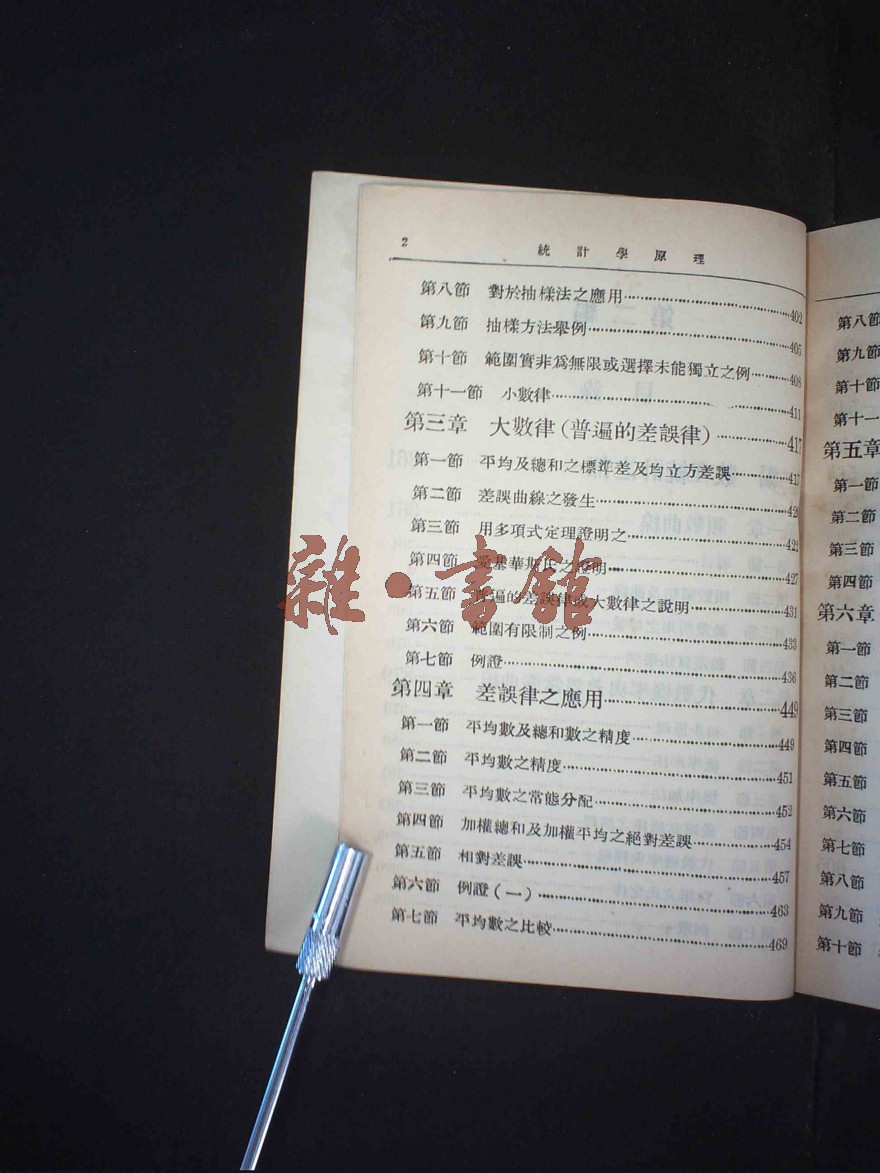 2 統計學原理
第八節 對於抽樣法之應用 402
第九節 抽樣方法舉例 405
第十節 範圍實非爲無限或選擇未能獨立之例 408
第十一節 小數律 411
第三章 大數律(普遍的差誤律) 417
第一節 平均及總和之標準差及均立方差誤 417
第二節 差誤曲線之發生 420
第三節 用多項式定理證明之 422
第四節 愛基華斯氏之證明 427
第五節 普遍的差誤律或大數律之說明 431
第六節 範圍有限制之例 433
第七節 例證 436
第四章 差誤律之應用 449
第一節 平均數及總和數之精度 449
第二節 平均數之精度 451
第三節 平均數之常態分配 452
第四節 加權總和及加權平均之絕對差誤 454
第五節 相對差誤 457
第六節 例證(一) 463
第七節 平均數之比較 469
雜·書館
第八節
第九節
第十節
第十一
第五章
第一節
第二節
第三節
第四節
第六章
第一節
第二節
第三節
第四節
第五節
第六節
第七節
第八節
第九節
第十節